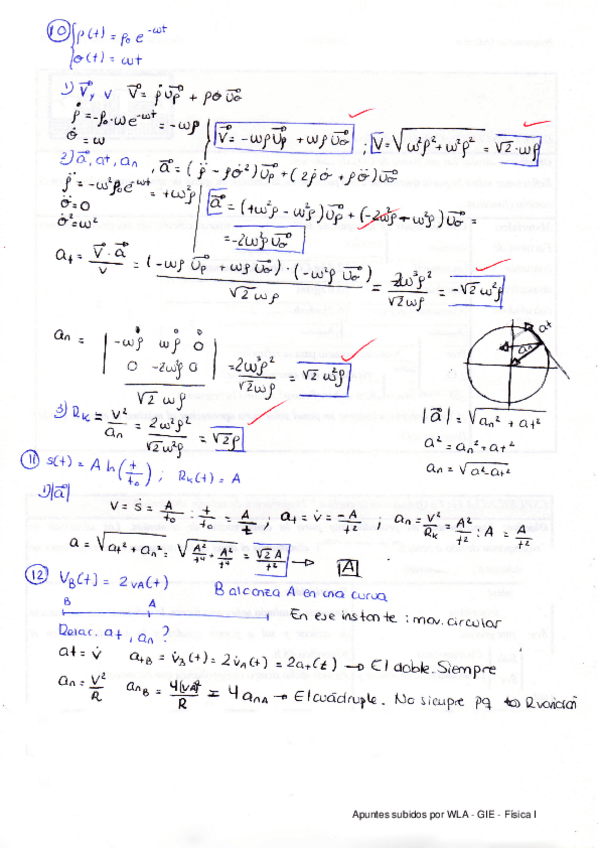 10 { ρ(t) = ρ₀ e^(-ωt)
θ(t) = ωt
1) v⃗, v   v⃗ = ρ̇ u⃗ρ + ρθ̇ u⃗θ
ρ̇ = -ρ₀·ωe^(-ωt) = -ωρ
θ̇ = ω
v⃗ = -ωρ u⃗ρ + ωρ u⃗θ ; v = √(ω²ρ² + ω²ρ²) = √2·ωρ
2) a⃗, at, an , a⃗ = (ρ̈ - ρθ̇²) u⃗ρ + (2ρ̇θ̇ + ρθ̈) u⃗θ
ρ̈ = -ω²ρ₀e^(-ωt) = +ω²ρ
θ̈ = 0
θ̇² = ω²
a⃗ = (+ω²ρ - ω²ρ) u⃗ρ + (-2ω²ρ + ω²ρ) u⃗θ =
= -2ω²ρ u⃗θ
at = v⃗·a⃗ / v = (-ωρ u⃗ρ + ωρ u⃗θ)·(-ω²ρ u⃗θ) / √2 ωρ = 2ω³ρ² / √2ωρ = -√2 ω²ρ
an = | -ωρ ωρ 0
0 -2ωρ 0 | / √2 ωρ = 2ω³ρ² / √2ωρ = √2 ω²ρ
at
an
|a⃗| = √(an² + at²)
a² = an² + at²
an = √(a²-at²)
3) RK = v²/an = 2ω²ρ² / √2ω²ρ = √2ρ
11 s(t) = A ln(t/t₀) ; RK(t) = A
1) |a⃗|
v = ṡ = A/t₀ : t/t₀ = A/t ; at = v̇ = -A/t² ; an = v²/RK = A²/t² : A = A/t²
a = √(at² + an²) = √(A²/t⁴ + A²/t⁴) = √2 A/t² → A
12 VB(t) = 2VA(t)   B alcanza A en una curva
B A
En ese instante : mov. circular
Relac. at, an ?
at = v̇   atB = v̇B(t) = 2v̇A(t) = 2aT(t) → El doble. Siempre
an = v²/R   anB = 4(vA)²/R = 4anA → El cuádruple. No siempre pq
Apuntes subidos por WLA - GIE - Física I